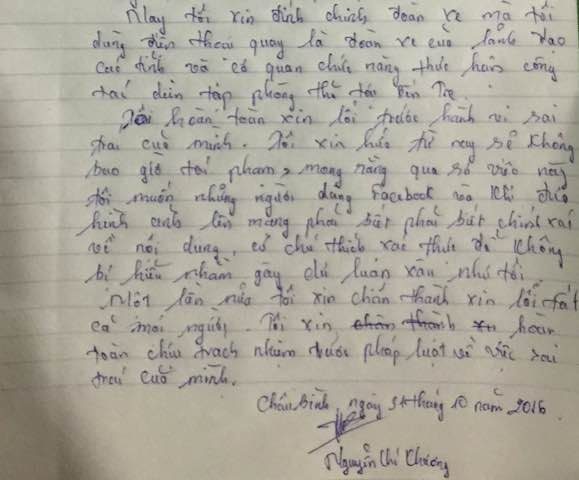 Nay tôi xin đính chính đoàn xe mà tôi
dùng điện thoại quay là đoàn xe của lãnh đạo
các tỉnh và cơ quan chức năng thực hiện công
tác diễn tập phòng thủ tại Bến Tre.
Tôi hoàn toàn xin lỗi trước hành vi sai
trái của mình. Tôi xin hứa từ nay sẽ không
bao giờ tái phạm, mong rằng qua sự việc này
tôi muốn những người dùng Facebook và khi đưa
hình ảnh lên mạng phải biết phải biết chính xác
về nội dung, có chú thích xác thực để không
bị hiểu nhầm gây dư luận xấu như tôi
Một lần nữa tôi xin chân thành xin lỗi tất
cả mọi người. Tôi xin chân thành xin hoàn
toàn chịu trách nhiệm trước pháp luật về việc sai
trái của mình.
Châu Bình, ngày 31 tháng 10 năm 2016
Nguyễn Chí Khương